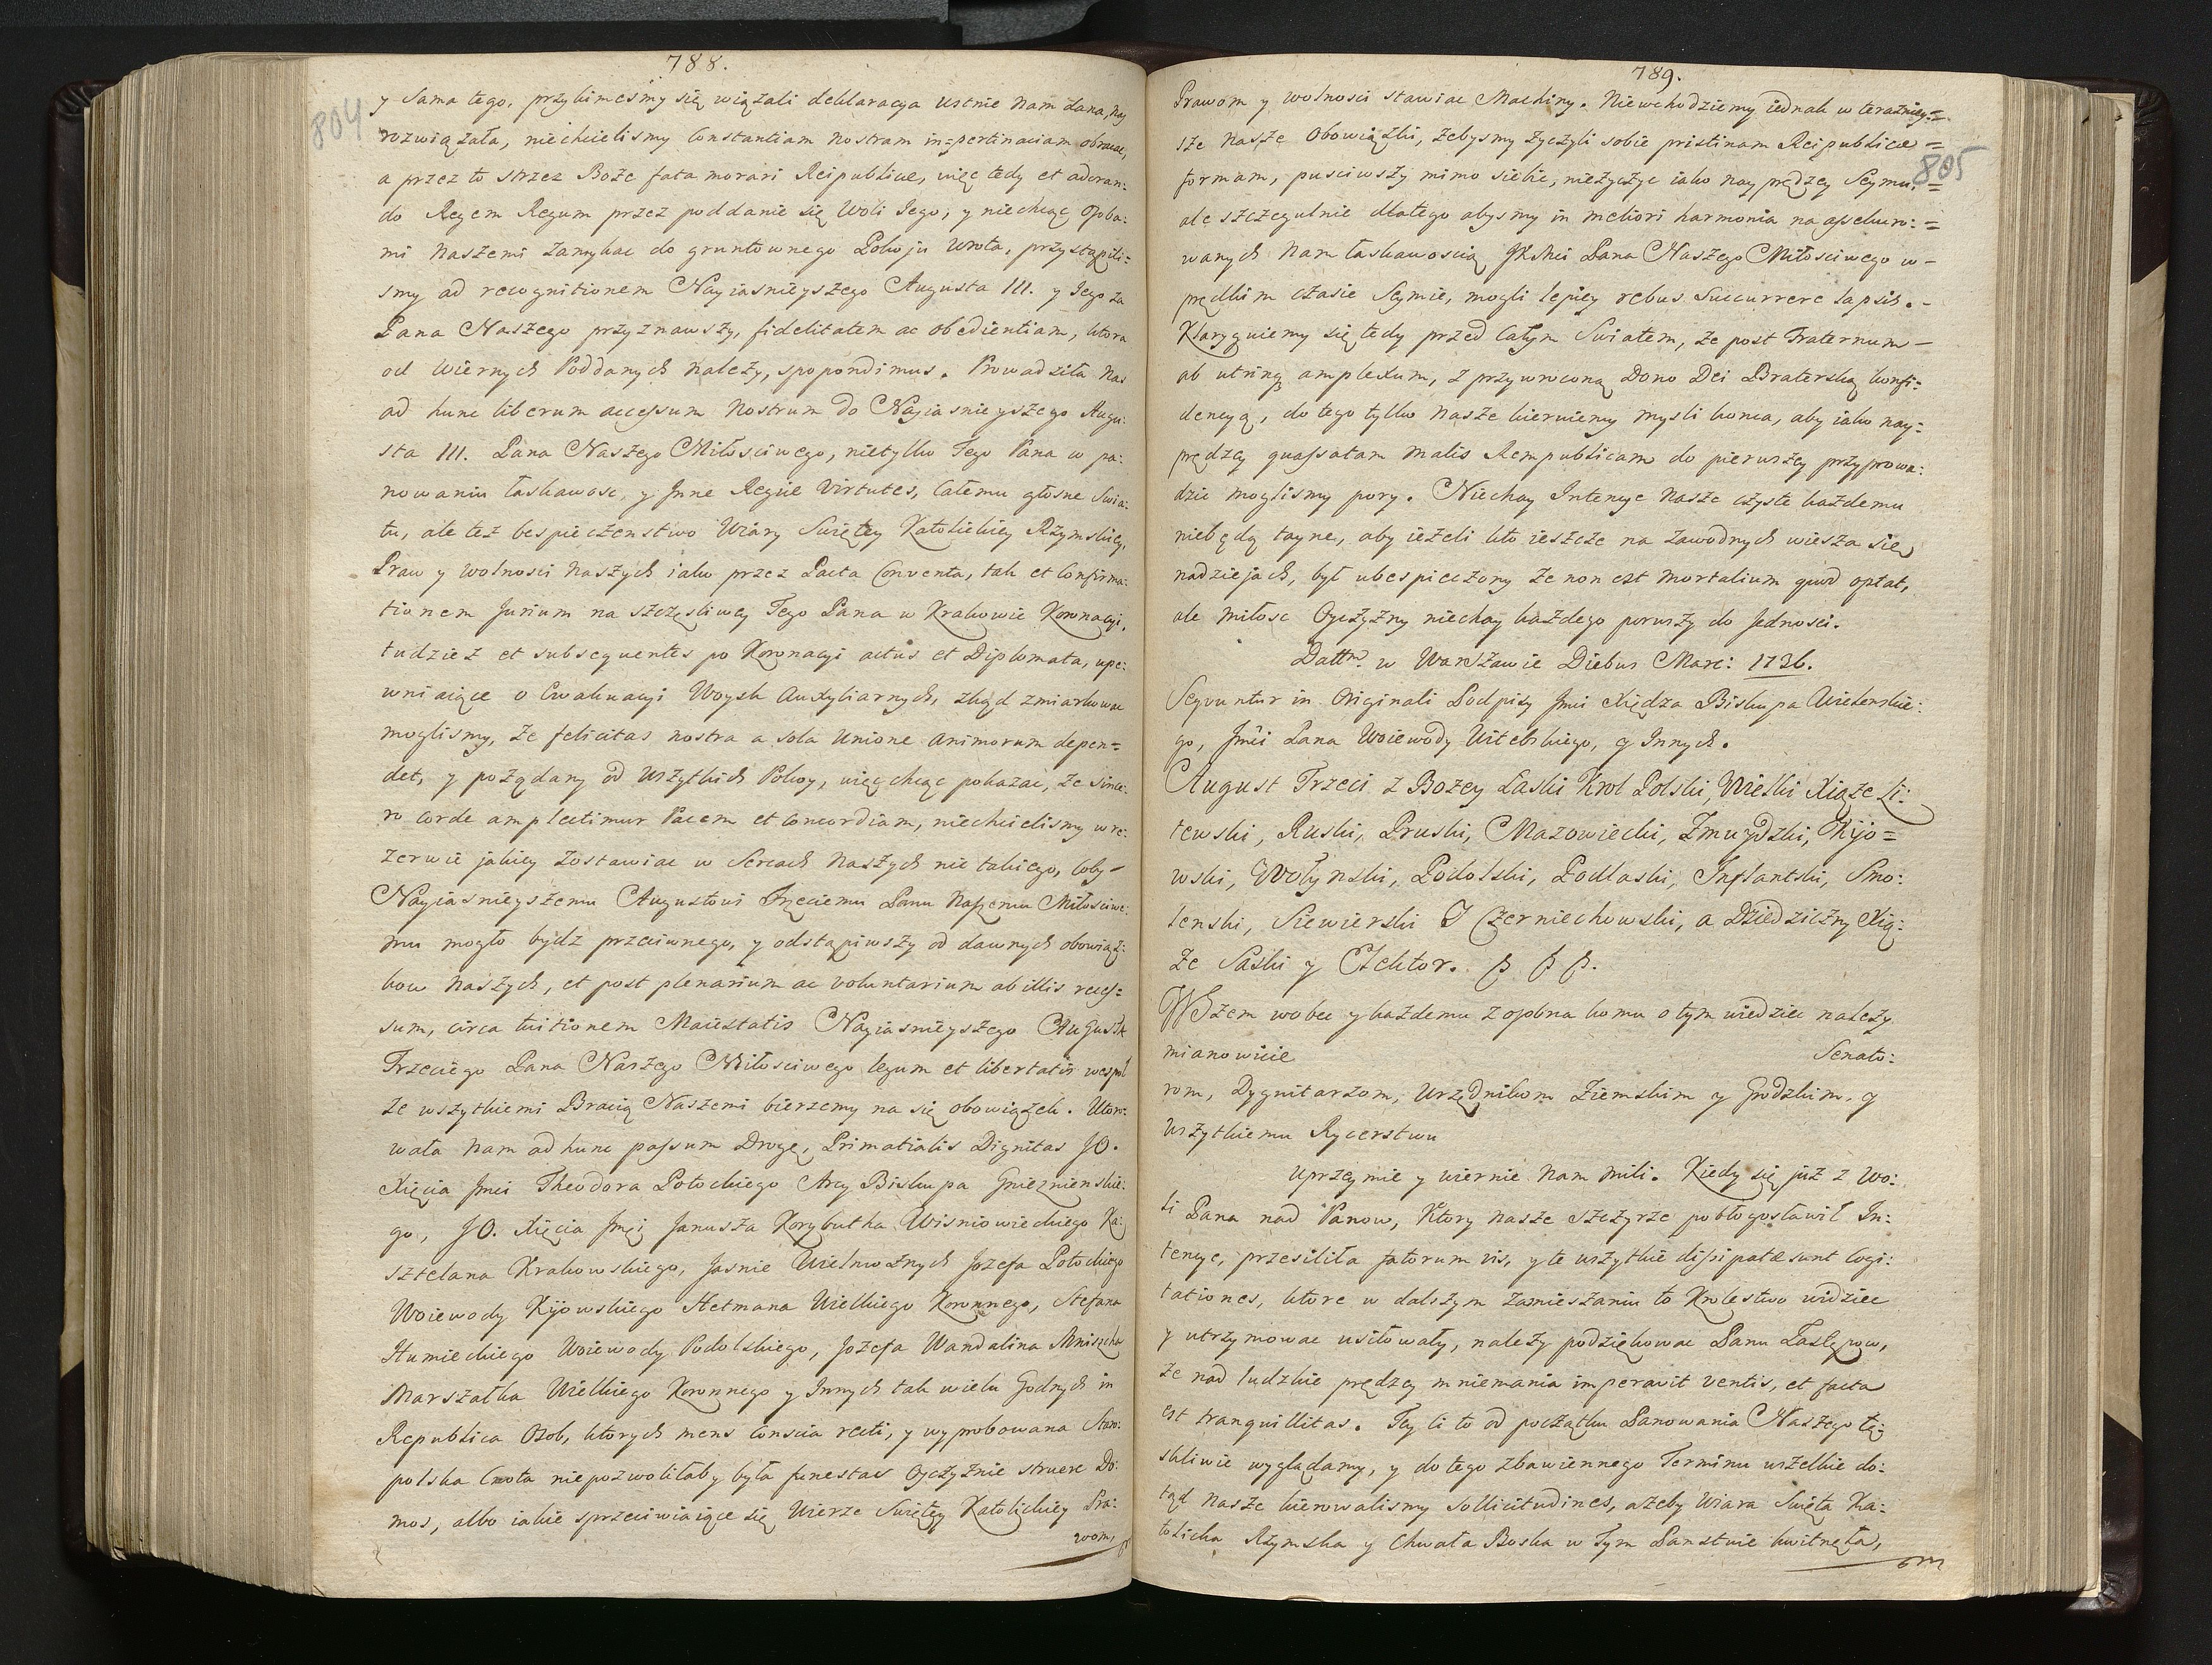 788.
804
y sama tego, przykimesmy się wiązali deklaracya ustnie nam dana, nas
rozwiązała, niechcielismy Constantiam nostram in=pertinaciam obracac,
a przez to strzez Boże fata morari Reipublicæ, więc tedy et adoran:
do Regem Regum przez poddanie się Woli Jego, y niechcąc Osoba:
mi naszemi zamykac do gruntownego Pokoju wrota, przystąpili:
smy ad recognitionem Nayiasnieyszego Augusta III. y Jego za
Pana Naszego przyznawszy, fidelitatem ac obedientiam, ktora
od wiernych Poddanych należy, spopondimus. Prowadziła nas
ad hunc liberum accessum nostrum do Nayiasnieyszego Augu:
sta III. Pana Naszego Miłosciwego, nietylko Tego Pana w pa:
nowaniu łaskawosc, y Jnne Regiæ Virtutes, całemu głosne Swia:
tu, ale też bespieczenstwo Wiary Swiętey Katolickiey Rzymskiey,
Praw y wolnosci naszych iako przez Pacta Conventa, tak et Confirma:
tionem Jurium na szczęsliwey Tego Pana w Krakowie Koronacyi,
tudzież et subsequentes po Koronacyi actus et Diplomata, upe:
wniaiące o Ewakuacyi Woysk Auxyliarnych, zkąd zmiarkowac
moglismy, że felicitas nostra a sola unione animorum depen=
det, y pożądany od wszytkich Pokoy, więc chcąc pokazac, że since:
ro corde amplectimur Pacem et Concordiam, niechcielismy w re:
zerwie jakiey zostawiac w Sercach naszych nic takiego, coby-
Nayiasnieyszemu Augustowi Trzeciemu Panu Naszemu Miłosciwe:
mu mogło bydz przeciwnego, y odstąpiwszy od dawnych obowiąz:
kow naszych, et post plenarium ac voluntarium ab illis reces=
sum, circa tuitionem Maiestatis Nayiasnieyszego Augusta
Trzeciego Pana Naszego Miłosciwego legum et libertatis wespoł
ze wszytkiemi Bracią Naszemi bierzemy na się obowiązek. Utoro:
wała nam ad hunc passum Drogę, Primatialis Dignitas JO.
Xięcia Jmci Theodora Potockiego Arcy Biskupa Gnieznienskie:
go, JO. Xięcia Jmci Janusza Korybutha Wisniowieckiego Ka:
sztelana Krakowskiego, Jasnie Wielmożnych Jozefa Potockiego
Woiewody Kijowskiego Hetmana Wielkiego Koronnego, Stefana
Humieckiego Woiewody Podolskiego, Jozefa Wandalina Mniszcha
Marszałka Wielkiego Koronnego y Jnnych tak wielu Godnych in
Republica Osob, ktorych mens conscia recti, y wyprobowana Staro:
polska Cnota niepozwoliłaby była funestas Oyczyznie struere Do:
mos, albo iakie sprzeciwiaiące się Wierze Swiętey Katolickiey Pra:
wom,
789.
805
Prawom y wolnosci stawiac Machiny. Niewchodziemy iednak w terazniey=
sze nasze obowiązki, żebysmy życzyli sobie pristinam Reipublicæ=
formam, pusciwszy mimo siebie, nieżyczyc iako nayprędzey Seymu,=
ale szczegulnie dlatego abysmy in meliori harmonia na assekuro:=
wanych nam łaskawoscią JKMci Pana Naszego Miłosciwego w-
prędkim czasie Seymie, mogli lepiey rebus succurrere lapsis.-
Klaryguiemy się tedy przed całym Swiatem, że post Fraternum-
ab utrinq amplexum, z przywroconą Dono Dei Braterską konfi:
dencyą, do tego tylko nasze kieruiemy mysli konca, aby iako nay:
prędzey quassatam malis Rempublicam do pierwszey przyprowa:
dzic moglismy pory. Niechay Intencye nasze czyste każdemu
niebędą tayne, aby ieżeli kto ieszcze na zawodnych wiesza się
nadziejach, był ubespieczony że non est mortalium quod optat,
ale miłosc Oyczyzny niechay każdego poruszy do Jednosci.
Dattm. w Warszawie Diebus Marc: 1736.
Sequuntur in Originali Podpisy Jmci Xiędza Biskupa Wilenskie:
go, Jmci Pana Woiewody Witebskiego, y Innych.
August Trzeci z Bożey Łaski Krol Polski, Wielki Xiąże Li:
tewski, Ruski, Pruski, Mazowiecki, Zmuydzki, Kijo=
wski, Wołynski, Podolski, Podlaski, Inflantski, Smo:
lenski, Siewierski I Czerniechowski, a Dziedziczny Xią:
że Saski y Elektor. p p p.
WSzem wobec y każdemu z osobna komu o tym wiedziec należy
mianowicie Senato:
rom, Dygnitarzom, Urzędnikom Ziemskim y Grodzkim, y
wszytkiemu Rycerstwu
Uprzeymie y wiernie nam mili. Kiedy się już z Wo:
li Pana nad Panow, Ktory nasze szczyrze pobłogosławił In:
tencye, przesiliła fatorum vis, y te wszytkie dissipatæ sunt Cogi:
tationes, ktore w dalszym zamieszaniu to Krolestwo widziec
y utrzymowac usiłowały, należy podziękowac Panu Zastępow,
że nad ludzkie prędzey mniemania imperavit ventis, et facta
est tranquillitas. Tey li to od początku Panowania Naszego tę:
skliwie wyglądamy, y do tego zbawiennego Terminu wszelkie do:
tąd nasze kierowalismy sollicitudines, ażeby Wiara Swięta Ka:
tolicka Rzymska y Chwała Boska w Tym Panstwie kwitnęła,